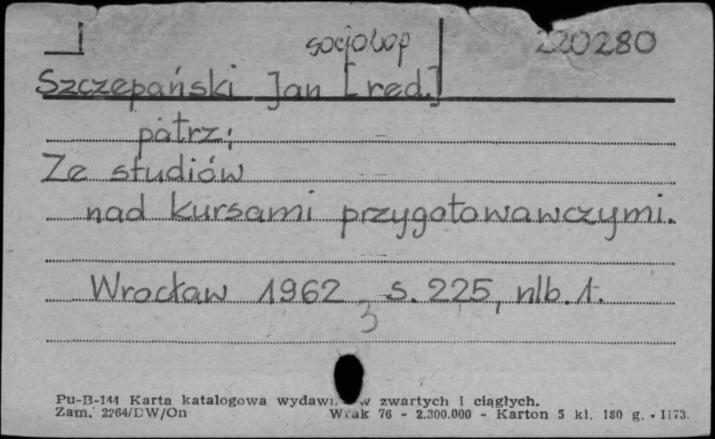 220280
Szczepański Jan [red.]
patrz:
Ze studiów
nad kursami przygotowawczymi.
Wrocław 1962 s. 225, nlb. 1.
3
Pu-B-144 Karta katalogowa w zwartych i ciągłych.
Zam. 2264/DW/On 76 - 2.300.000 - Karton 5 kl. 180 g. - 1173.